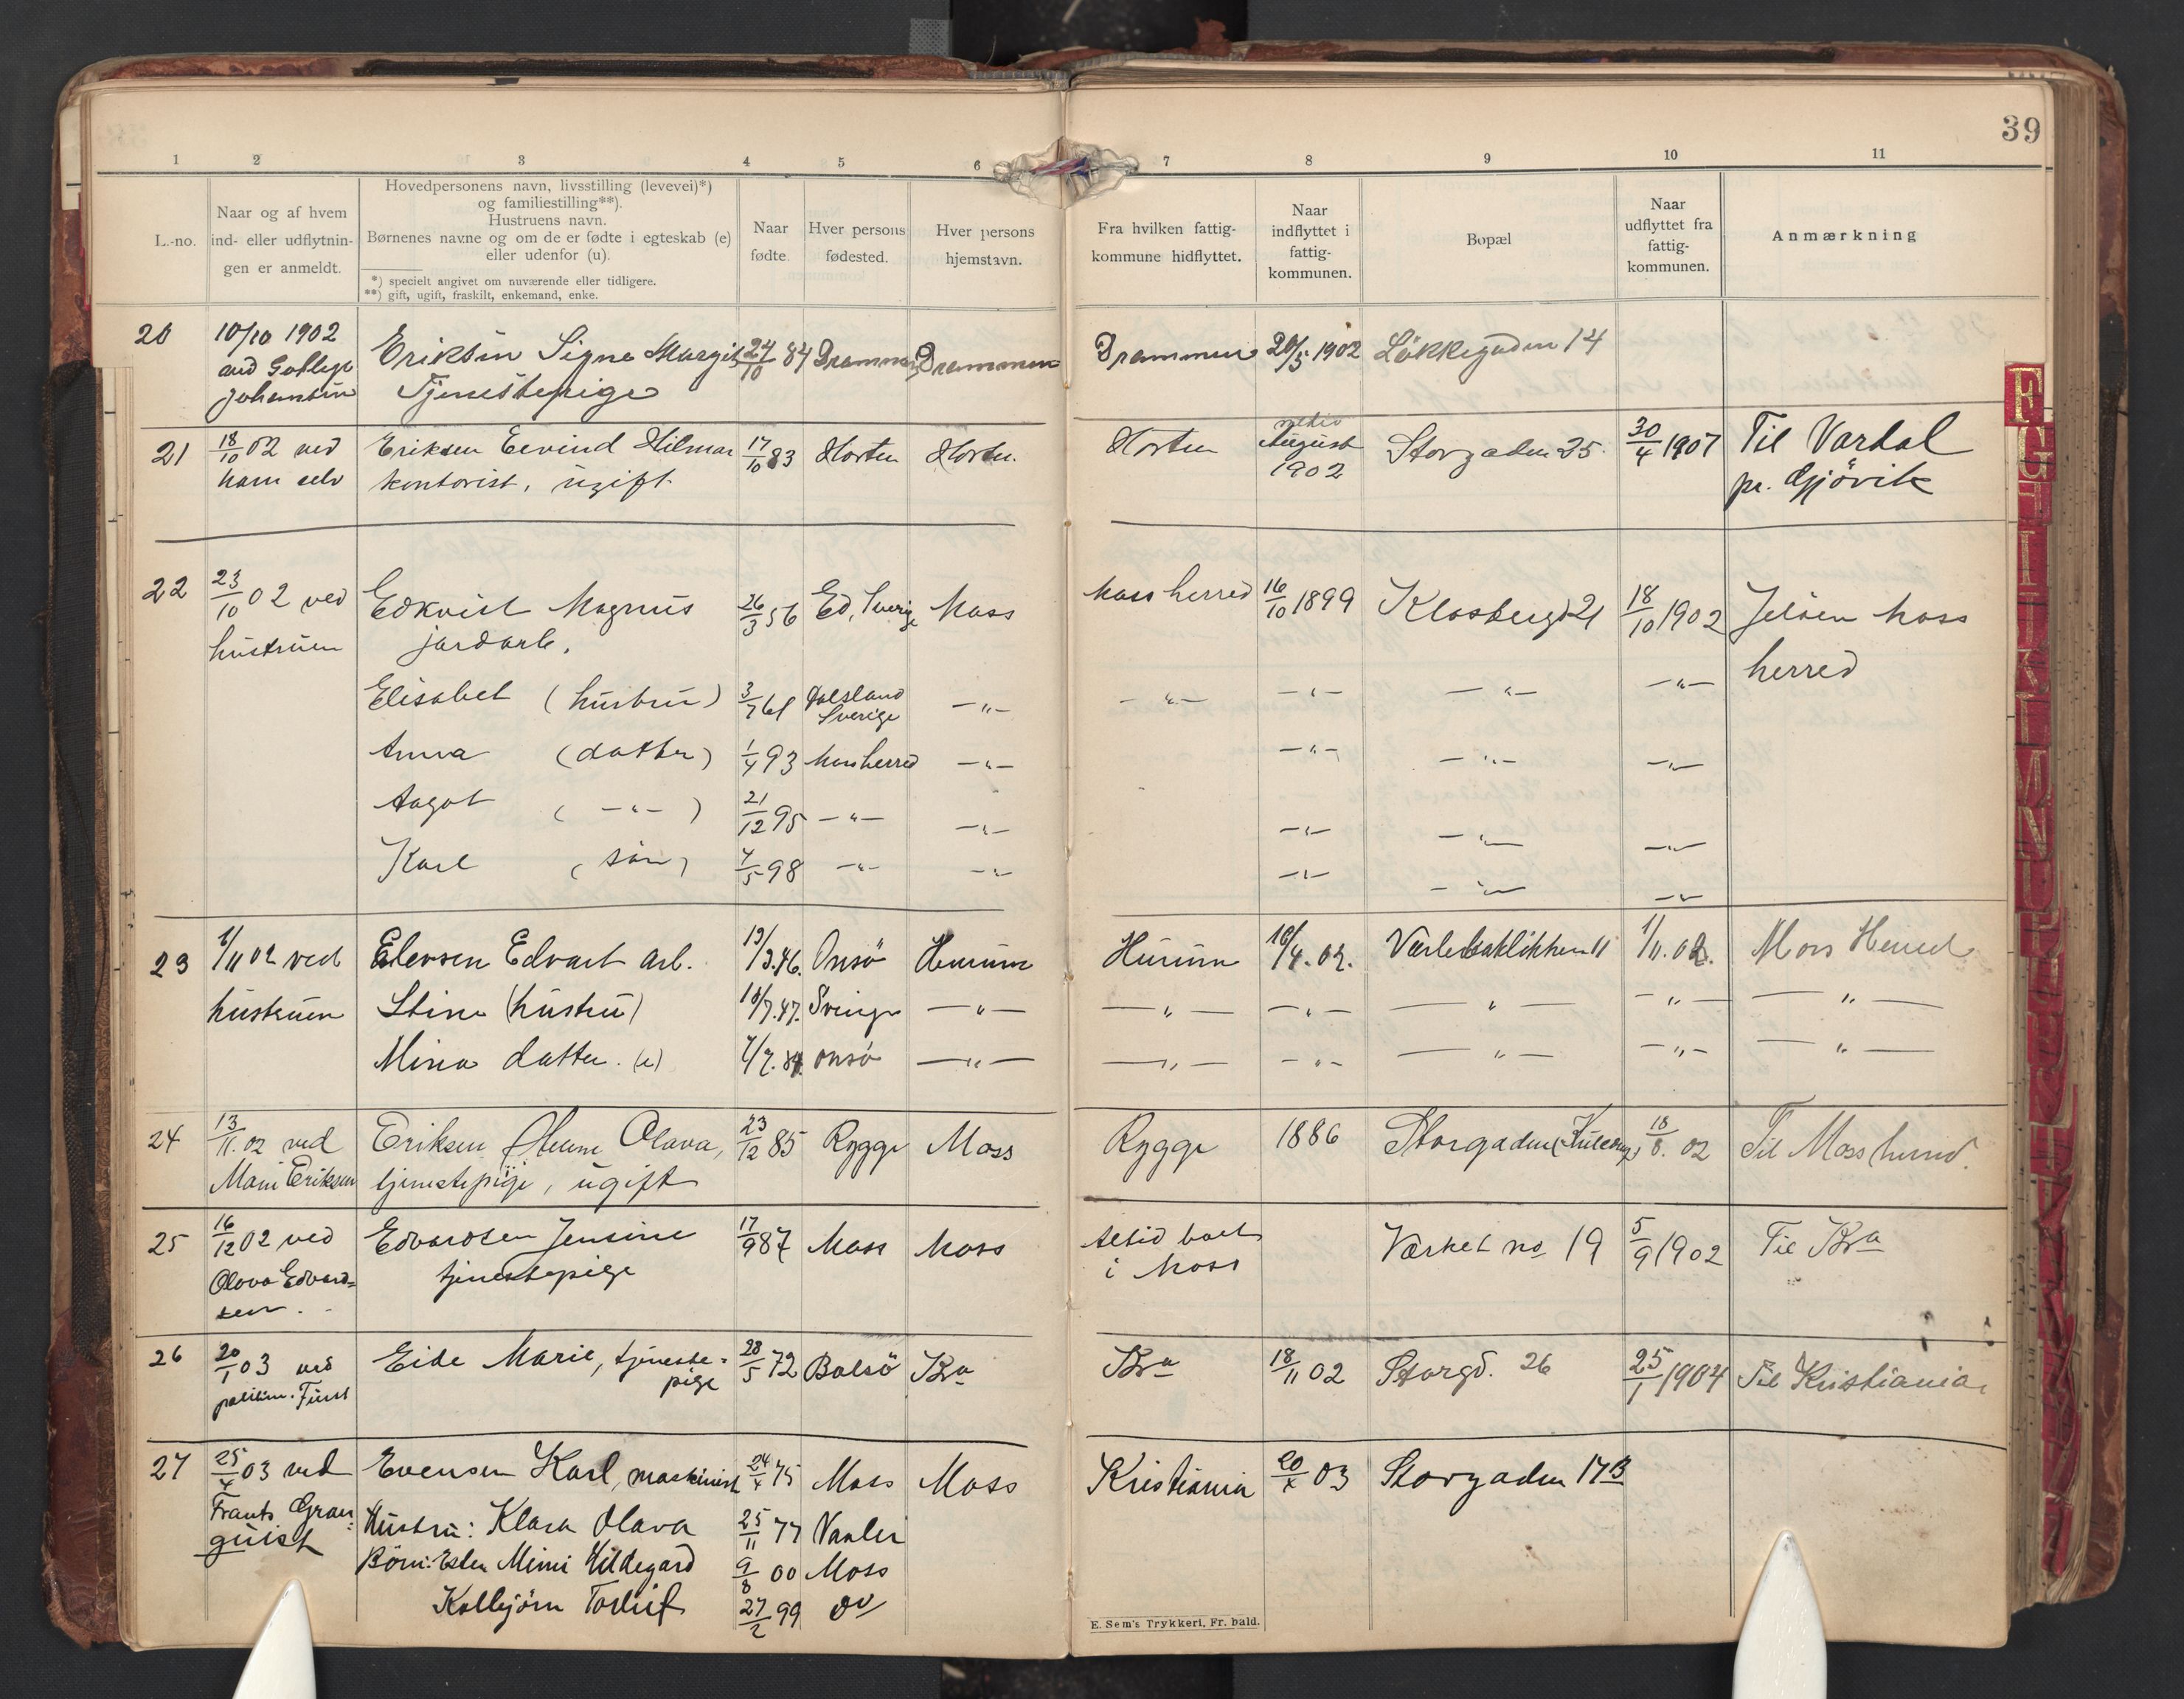 39
1 2 3 4 5 6 7 8 9 10 11
L.-no.
Naar og af hvem
ind- eller udflytnin-
gen er anmeldt.
Hovedpersonens navn, livsstilling (levevei)*)
og familiestilling**).
Hustruens navn.
Børnenes navne og om de er fødte i egteskab (e)
eller udenfor (u).
*) specielt angivet om nuværende eller tidligere.
**) gift, ugift, fraskilt, enkemand, enke.
Naar
fødte.
Hver persons
fødested.
Hver persons
hjemstavn.
Fra hvilken fattig-
kommune hidflyttet.
Naar
indflyttet i
fattig-
kommunen.
Bopæl
Naar
udflyttet fra
fattig-
kommunen.
Anmærkning
20 10/10 1902 Eriksen Signe Margit 24/10 84 Drammen Drammen Drammen 20/5 1902 Løkkegaden 14
Johansen Tjenestepige
21 18/10 02 ved Eriksen Eevind Hilmar 17/10 83 Horten Horten. Horten August 1902 Storgaden 25. 30/4 1907 Til Vardal
ham selv kontorist, ugift. pr. Gjövik
22 23/10 02 ved Edkvist Magnus 26/3 56 Ed, Sverige Moss Moss herred 16/10 1899 Klosbergd 21 18/10 1902 Jeløen Moss
hustruen jordarb. herred
Elisabet (hustru) 3/7 61 Dalsland Sverige -"- -"- -"- -"- -"-
Anna (datter) 1/4 93 Moss herred -"- -"- -"- -"-
Aagot ( -"- ) 21/12 95 -"- -"- -"- -"- -"-
Karl (søn) 4/5 98 -"- -"- -"- -"- -"-
23 1/11 02 ved Elevsen Edvart arb. 19/3.46. Onsö Hurum Hurum 16/4. 02. 11 1/11. 02. Moss Herred
hustruen Stine (hustru) 10/7.47. Sverige -"- -"- -"- -"- -"- -"-
Mina datter. (e) 7/7. 84. Onsö -"- -"- -"- -"- -"- -"-
24 13/11. 02 ved Eriksen Olava, 23/12 85 Rygge Moss Rygge 1886 Storgaden 18/8. 02 Til Moss herred.
Marie Eriksen tjenestepige, ugift
25 16/12 02 ved Edvardsen Jensine 17/9 87 Moss Moss Altid boet Værket no 19 5/9 1902 Til Kra
Olava Edvard= tjenestepige i Moss
sen.
26 20/1 03 ved Eide Marie, tjeneste= 28/5 72 Bolsö Kra Kra 18/11 02 Storgd. 26 25/1 1904 Til Kristiania
Fürst pige
27 25/4 03 ved Evensen Karl, maskinist 24/4 75 Moss Moss Kristiania 20/4 03 Storgaden 17B
Frants Gran= Hustru: Klara Olava 25/11 77 Vanler
quist Börn: Ester Mimi Hildegard 9/8 00 Moss
Kolbjörn Torleif 27/2 99 do
E. Sem's Trykkeri, Fr. hald.